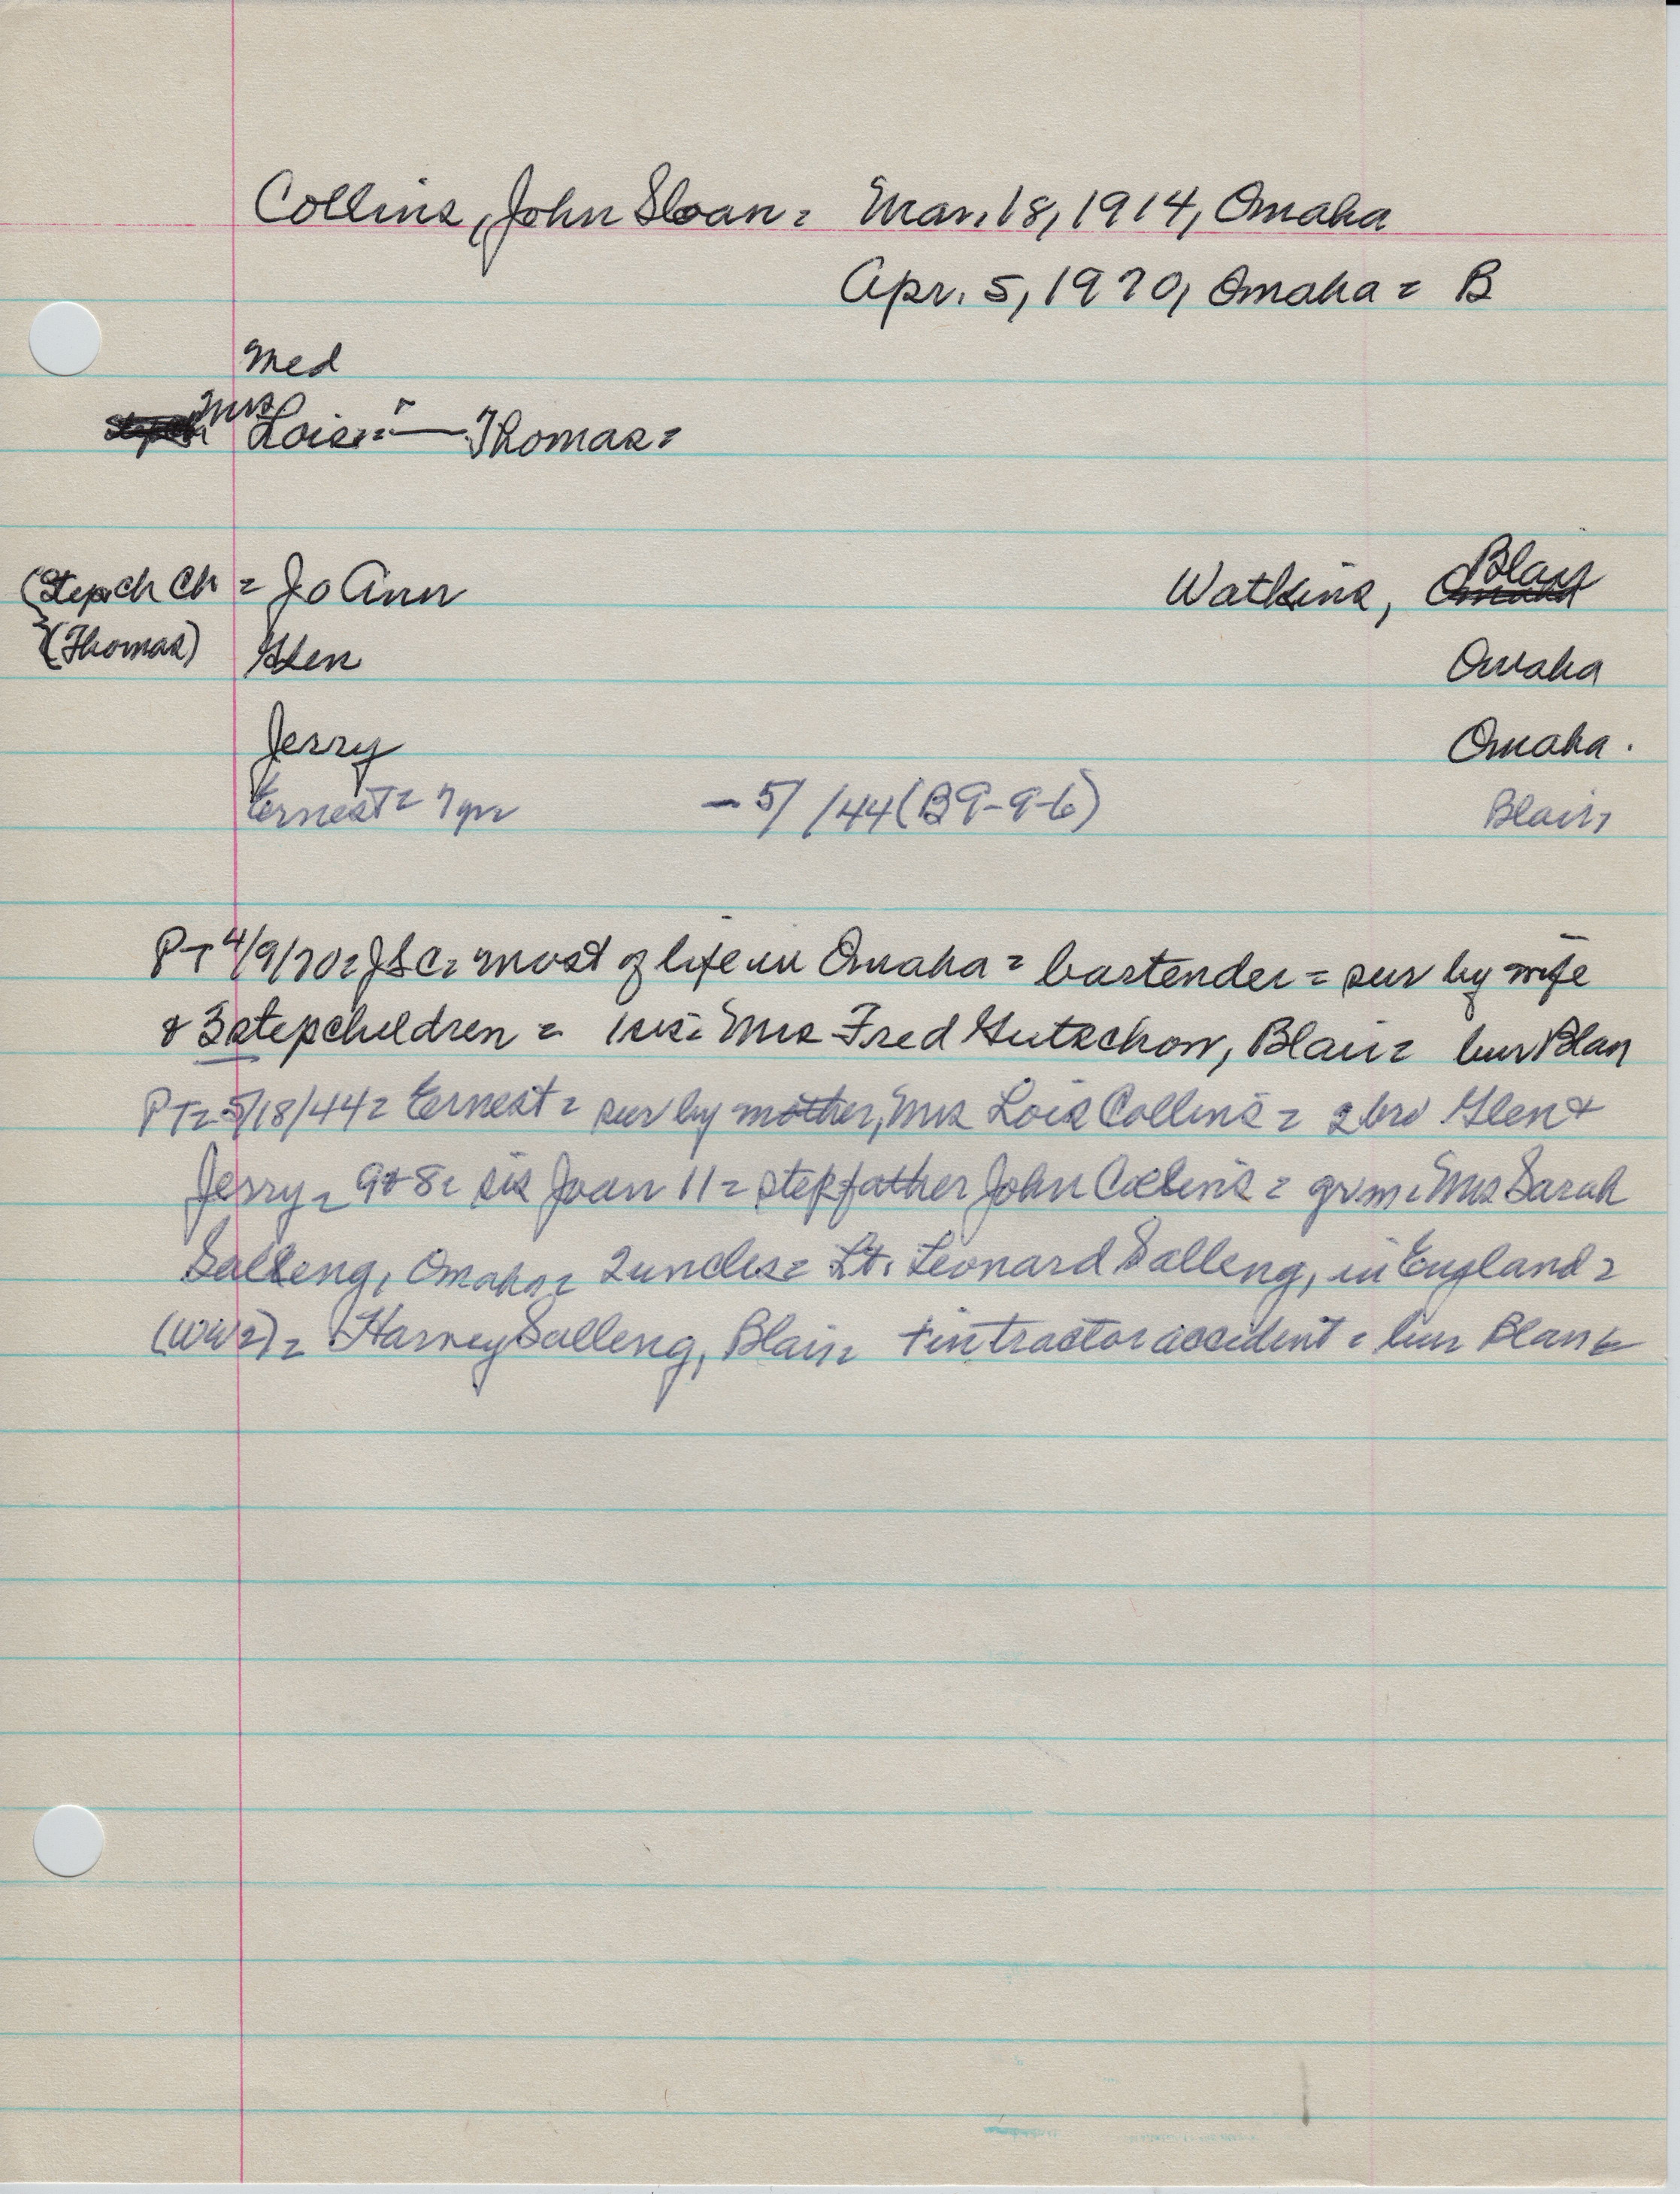 Collins, John Sloan = Mar. 18, 1914, Omaha
Apr. 5, 1970, Omaha = B
Med
Mrs Lois = — Thomas =
(Stepch Ch = Jo Ann Watkins, Blair
(Thomas) Glen Omaha
Jerry Omaha.
Ernest = 7 yrs - 5/ /44 (B 9-9-6) Blair,
PT 4/9/70 = JSC = most of life in Omaha = bartender = sur by wife
& 3 stepchildren = 1 sis = Mrs Fred Gutschow, Blair = bur Blair
PT = 5/18/44 = Ernest = sur by mother, Mrs Lois Collins = 2 bro Glen &
Jerry = 9 & 8 = sis Joan 11 = stepfather John Collins = grm = Mrs Sarah
Salleng, Omaha = 2 uncles = Lt. Leonard Salleng, in England =
(WW2) = Harvey Salleng, Blair = + in tractor accident = bur Blair